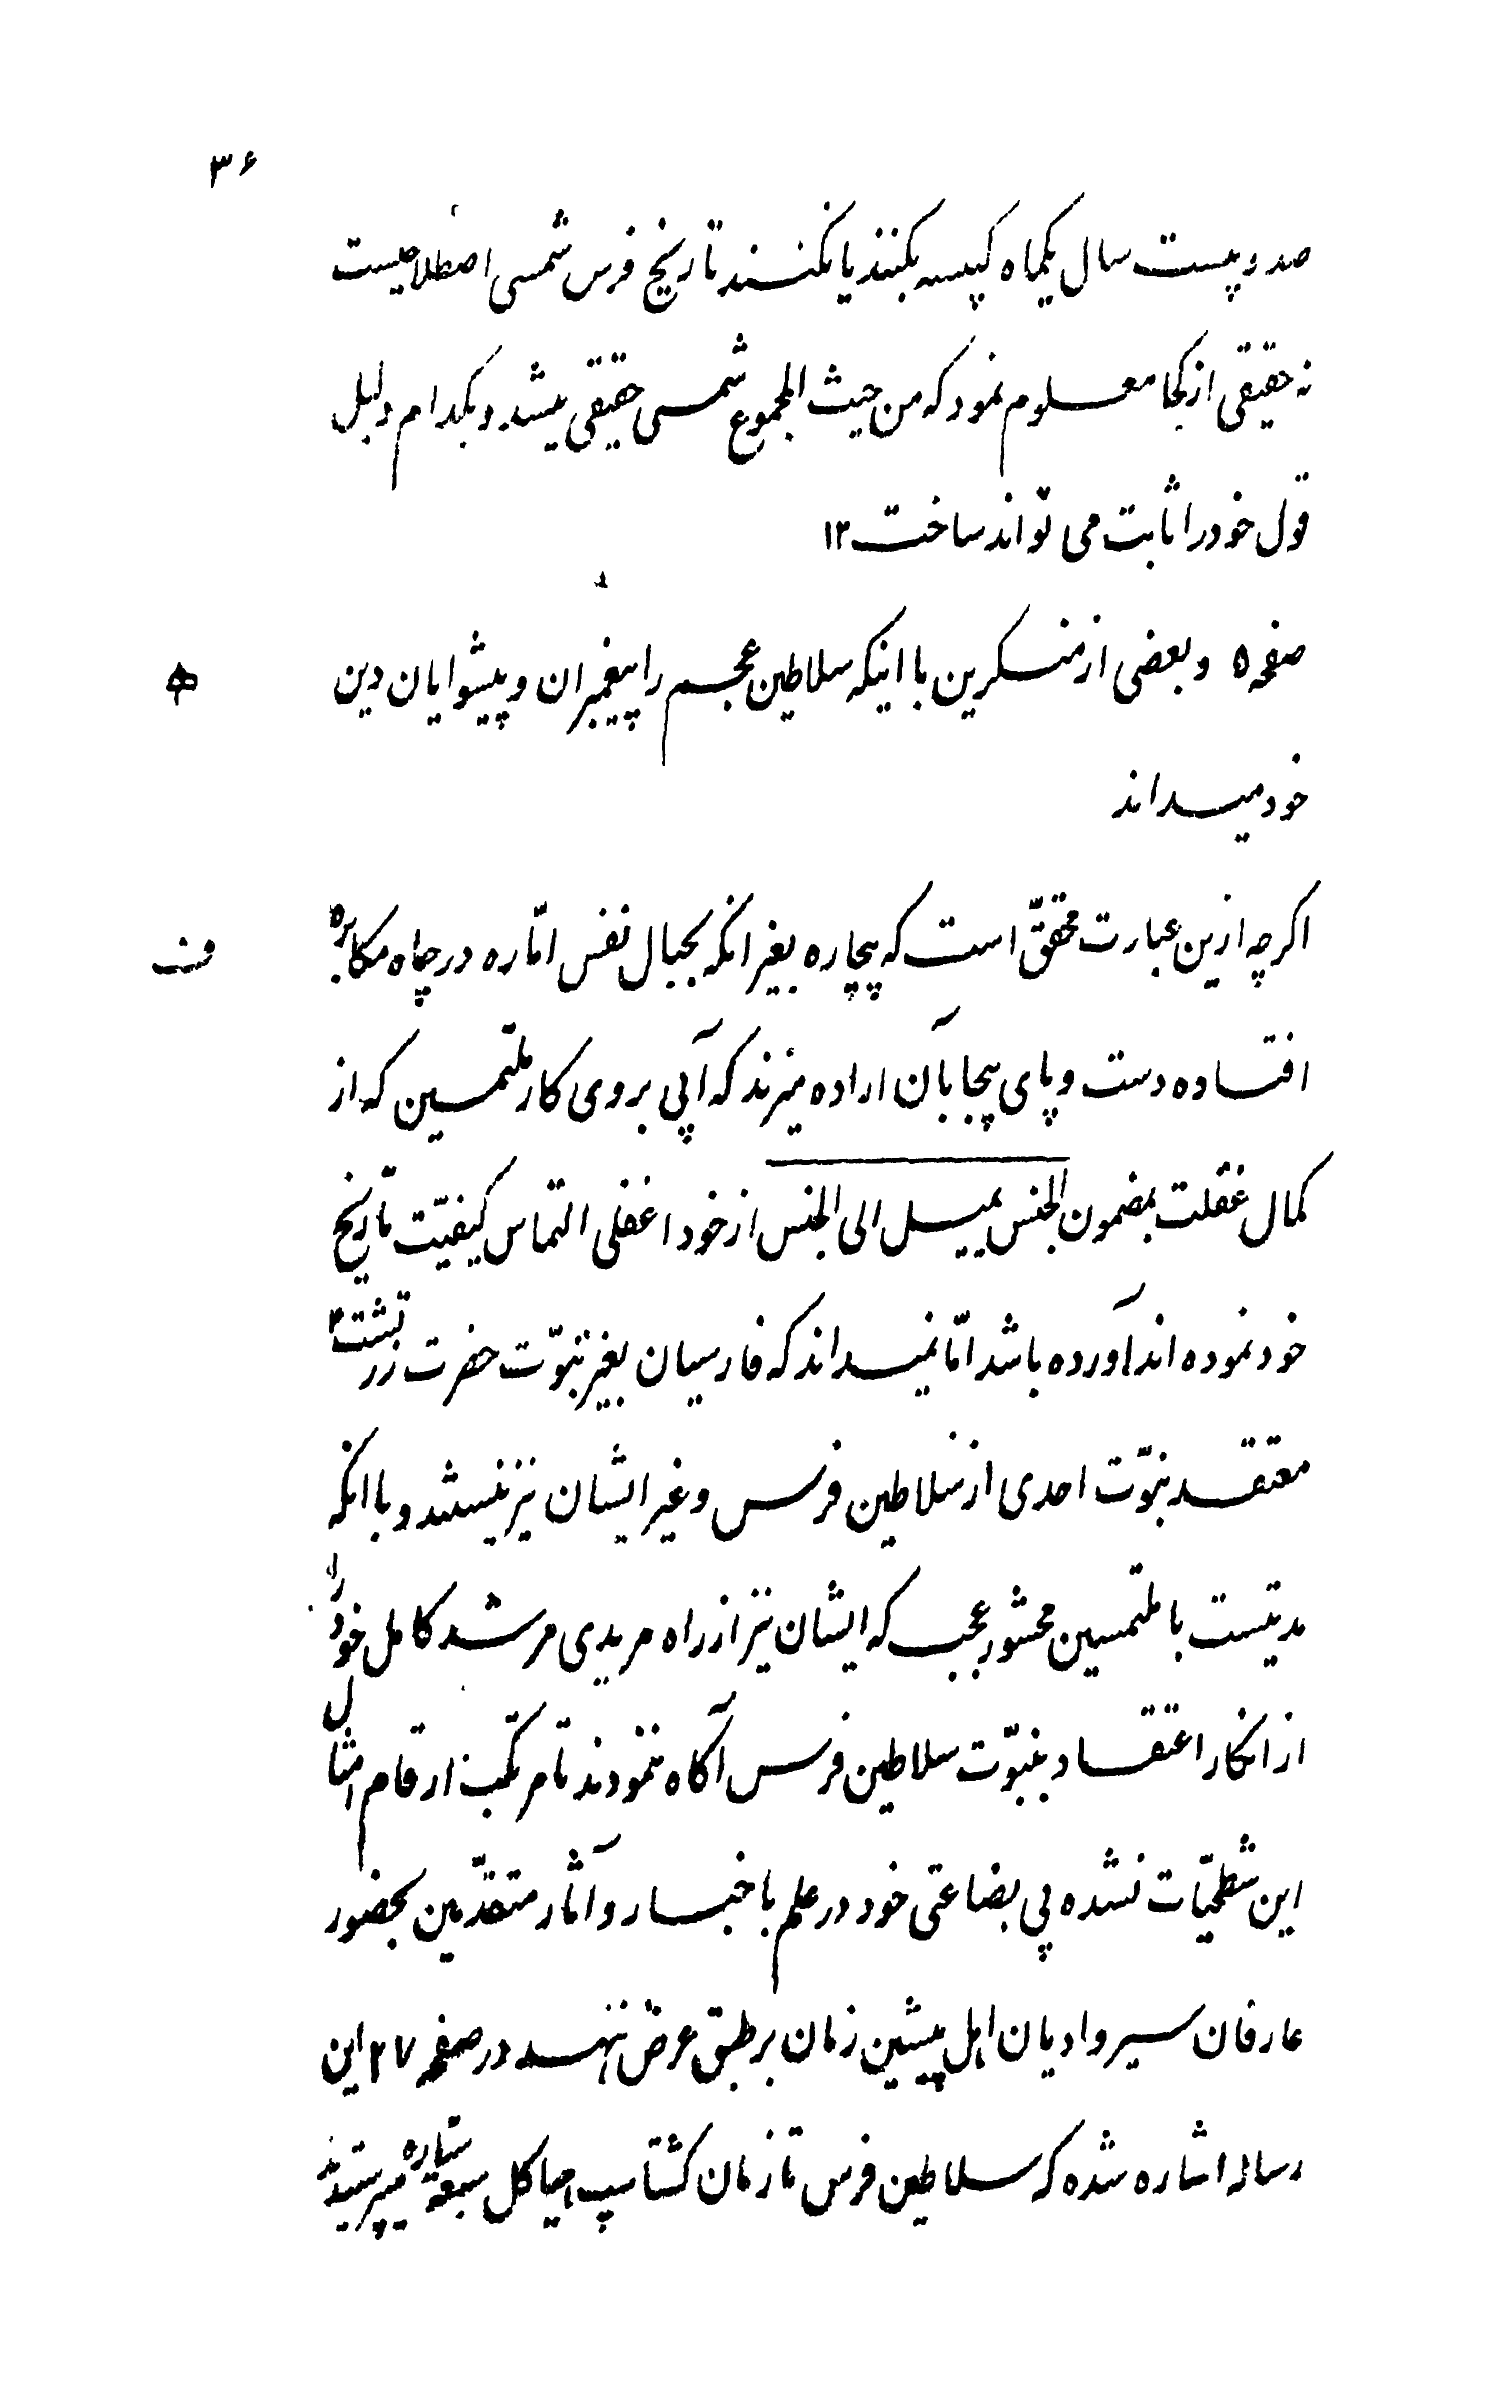 ۳۶
صد و بیست سال یکماه کبیسه بکنند یا نکنند تاریخ فرس شمسی اصطلاحیست
نه حقیقی از کجا معلوم نمود که من حیث المجموع شمسی حقیقی میشد و بکدام دلیل
قول خود را ثابت می تواند ساخت ۱۲
صفحه ۵ و بعضی از منکرین با اینکه سلاطین عجم را پیغمبران و پیشوایان دین
خود میداند
اکرچه ازین عبارت محقّق است که بیچاره بغیر انکه بحبال نفس امّاره در چاه مکابره
افتاده دست و پای بیجا بآن اراده میزند که آبی بروی کار ملتمسین که از
کمال غفلت بمضمون الجنس یمیل الی الجنس از خود اغفلی التماس کیفیّت تاریخ
خود نموده اند آورده باشد امّا نمیداند که فارسیان بغیر نبوّت حضرت زرتشت
معتقد نبوّت احدی از سلاطین فرس و غیر ایشان نیز نیستند و با انکه
مدتیست با ملتمسین محشور عجب که ایشان نیز از راه مریدی مرشد کامل خود را
از انکار اعتقاد بنبوّت سلاطین فرس آکاه ننمودند تا مرتکب ارقام امثال
این شطحیّات نشده بی بضاعتی خود در علم باخبار و آثار متقدّمین بحضور
عارفان سیر و ادیان اهل پیشین زمان بر طبق عرض ننهد در صفحه ۲۷ این
رساله اشاره شده که سلاطین فرس تا زمان کشتاسپ هیاکل سبعه ستاره میپرستیدند